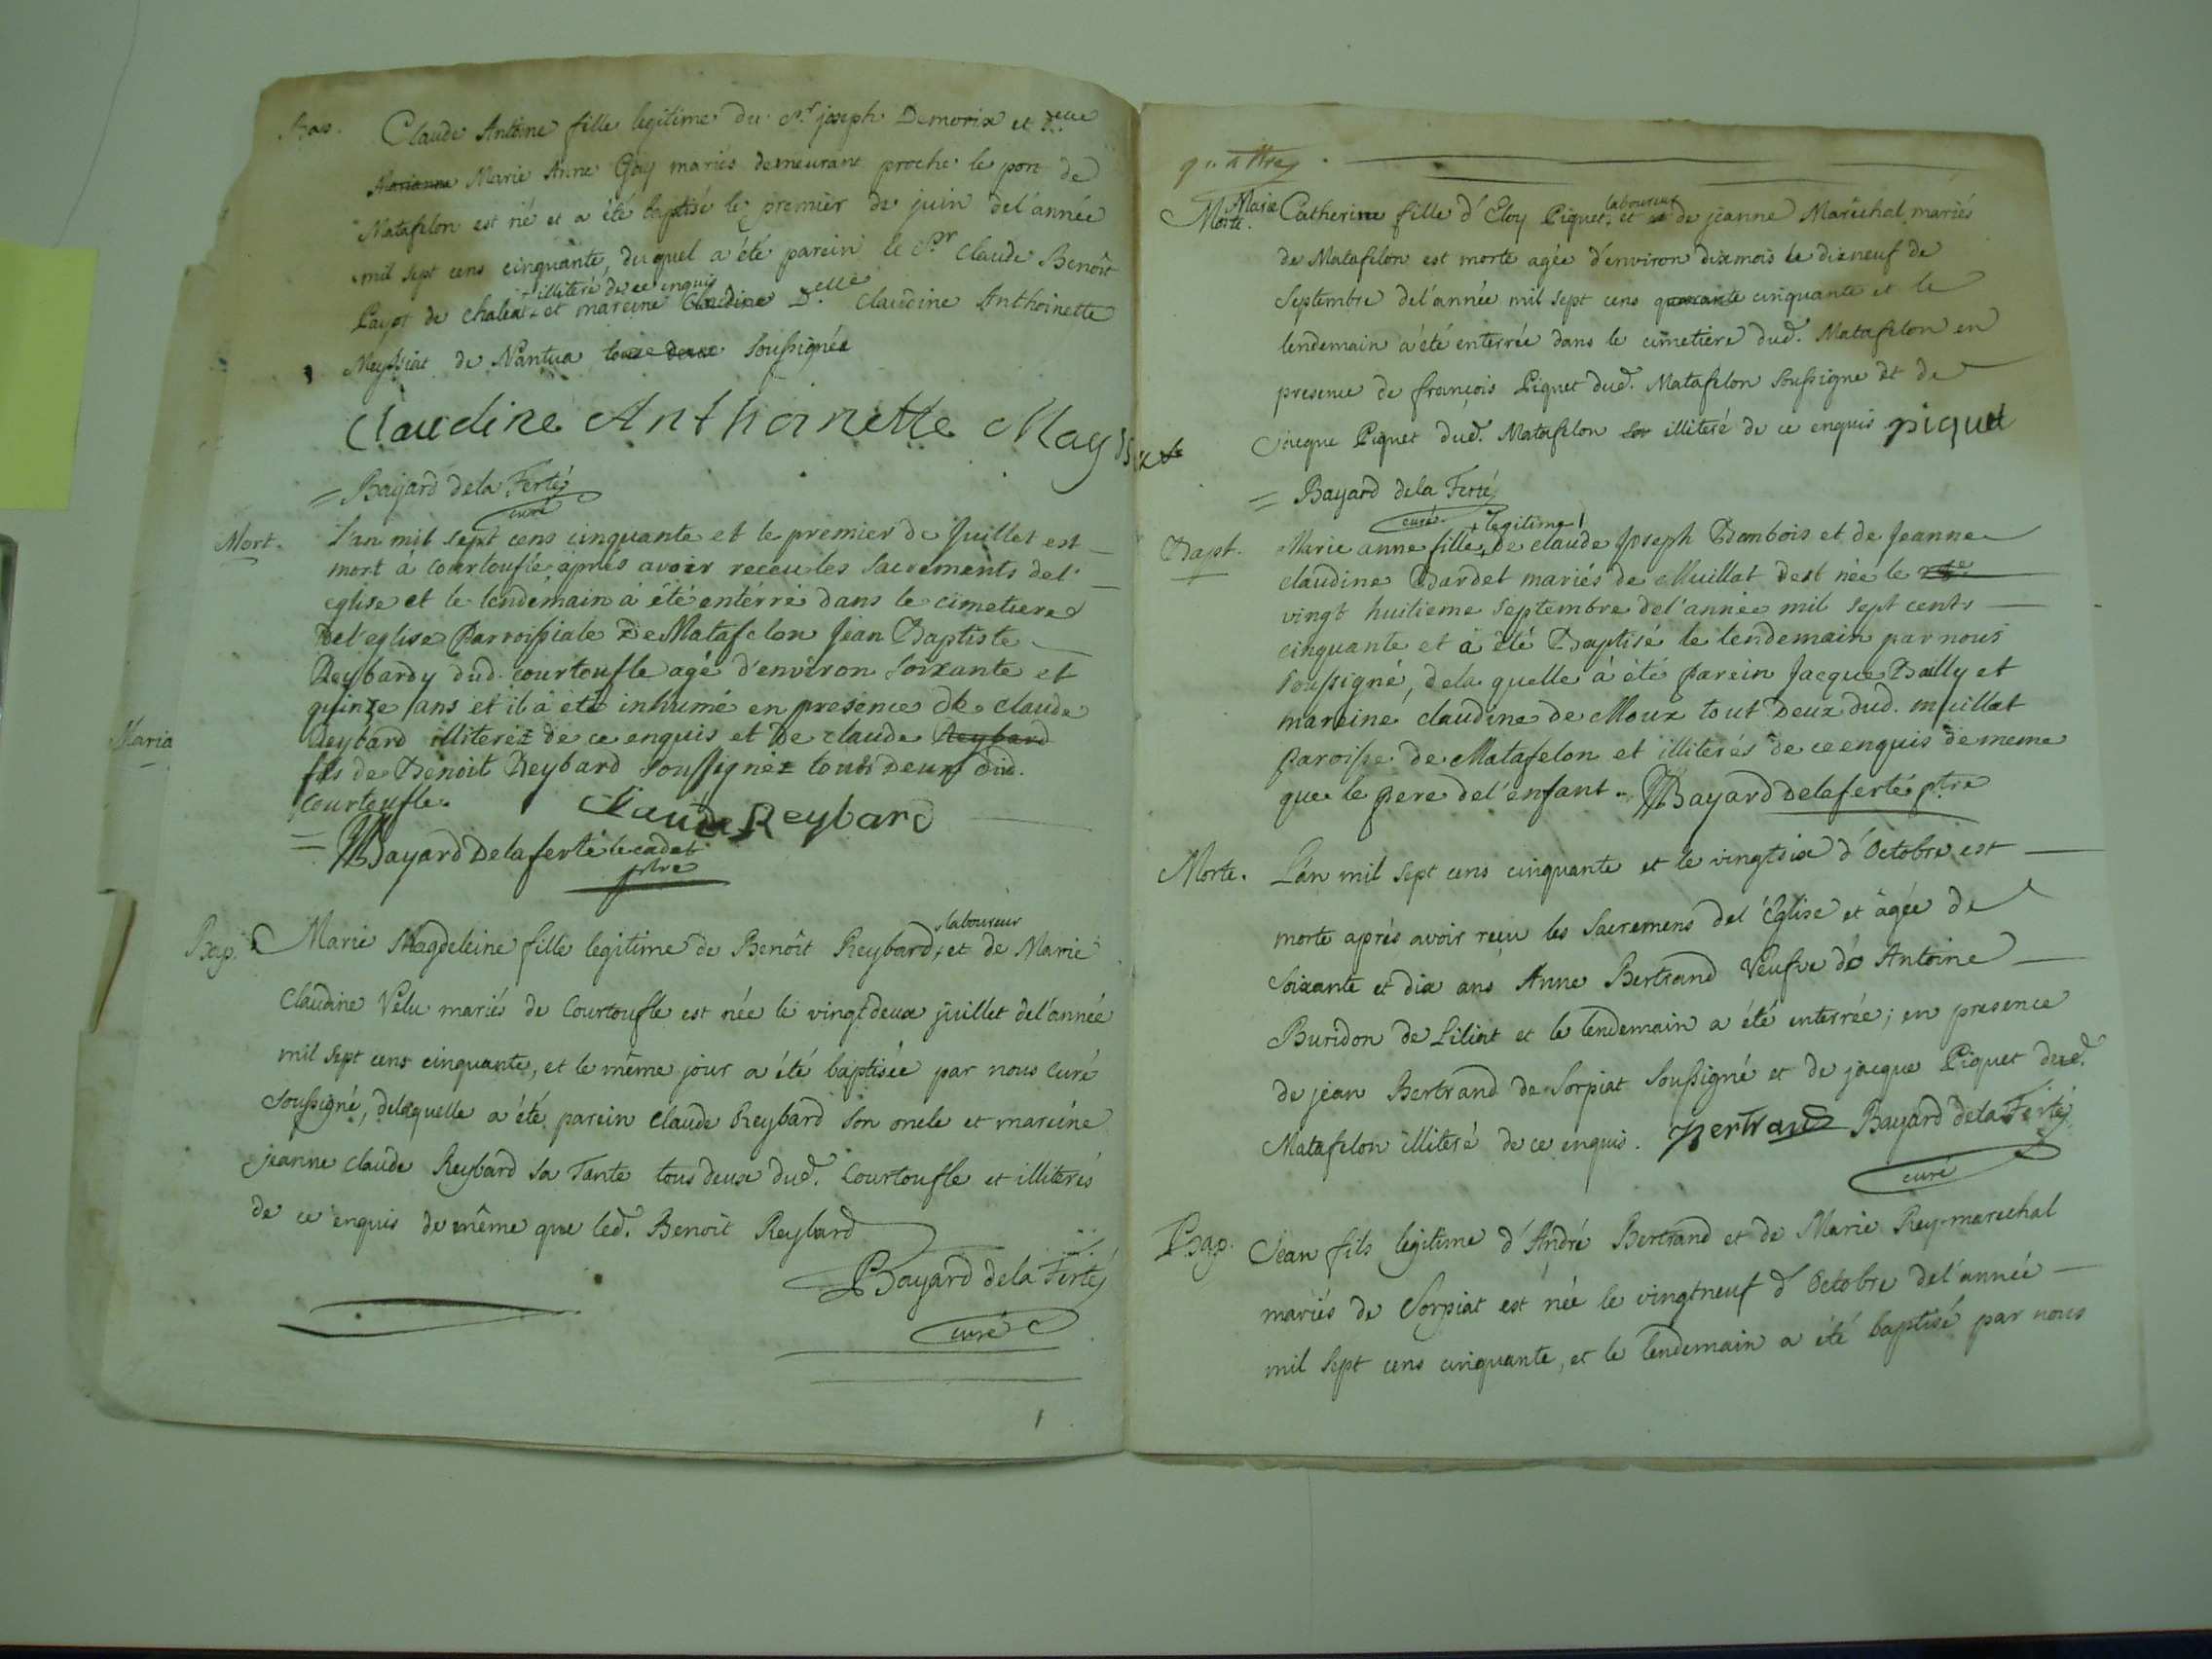 Bap. Claude Antoine fille legitime du Sr. joseph Demorix et Delle
Marianne Marie Anne Goy mariés demeurant proche le port de
Matafelon est né et a été baptisé le premier de juin del'année
mil sept cens cinquante, duquel a été parein le Sr. Claude Benoît
illiteré de ce enquis
Payot de chalea et mareine Claudine Delle Claudine Anthoinette
Meyssiat de Nantua tous deux soussignée
Claudine Anthoinette Mayssiat
= Bayard dela Ferté
curé
Mort. L'an mil sept cens cinquante et le premier de Juillet est
mort à Courtoufle après avoir receu les sacrements del'
eglise et le lendemain à été entérré dans le cimetiere
del'eglise Parroissiale De Matafelon Jean Baptiste
Reybardy dud. courtoufle agé d'environ soixante et
quinze ans et il à été inhumé en presence de claude
Reybard illiterez de ce enquis et De claude Reybard
fils de Benoit Reybard soussignez tous Deux dud.
Courtoufle. Claude Reybard
= Bayard Delaferté le cadet
ptre
Maria
Bap. Marie Magdeleine fille legitime de Benoît Reybard, laboureur et de Marie
Claudine Velu mariés de Courtoufle est née le vingtdeux juillet del'année
mil sept cens cinquante, et le même jour a été baptisée par nous Curé
soussigné, delaquelle a été parein Claude Reybard son oncle et mareine
jeanne claude Reybard sa Tante tous deux dud. Courtoufle et illiterés
de ce enquis de même que led. Benoit Reybard
Bayard dela Ferté
curé
quattrez
Morte. Marie Catherine fille d'Eloy Piquet, laboureur et de jeanne Maréchal mariés
de Matafelon est morte agée d'environ dixmois le dixneuf de
Septembre del'année mil sept cens quarante cinquante et le
lendemain a été enterrée dans le cimetiere dud. Matafelon en
presence de françois Piquet dud. Matafelon soussigné et de
Jacque Piquet dud. Matafelon illiteré de ce enquis piquet
= Bayard dela Ferté
curé
Bapt. Marie anne fille legitime de claude Joseph Dombois et de Jeanne
claudine Bardet mariés de Muillat est née le
vingt huitieme Septembre del'année mil sept cents
cinquante et à été Baptisé le lendemain par nous
soussigné, dela quelle à été parein Jacque Bailly et
mareine claudine de Moux tout Deux dud. muillat
paroisse de Matafelon et illiterés de ce enquis de meme
que le pere del'enfant. Bayard Delaferté ptre
Morte. L'an mil sept cens cinquante et le vingtsix d'Octobre est
morte aprés avoir reçu les Sacremens del'Eglise et âgée de
soixante et dix ans Anne Bertrand Veufve d'Antoine
Buridon de Siliat et le lendemain a été enterrée; en presence
de jean Bertrand de Sorpiat soussigné et de jacque Piquet dud.
Matafelon illiteré de ce enquis. Bertrand Bayard dela Ferté
curé
Bap. Jean fils legitime d'André Bertrand et de Marie Rey-marechal
mariés de Sorpiat est né le vingtneuf d'Octobre del'année
mil sept cens cinquante, et le lendemain a été baptisé par nous